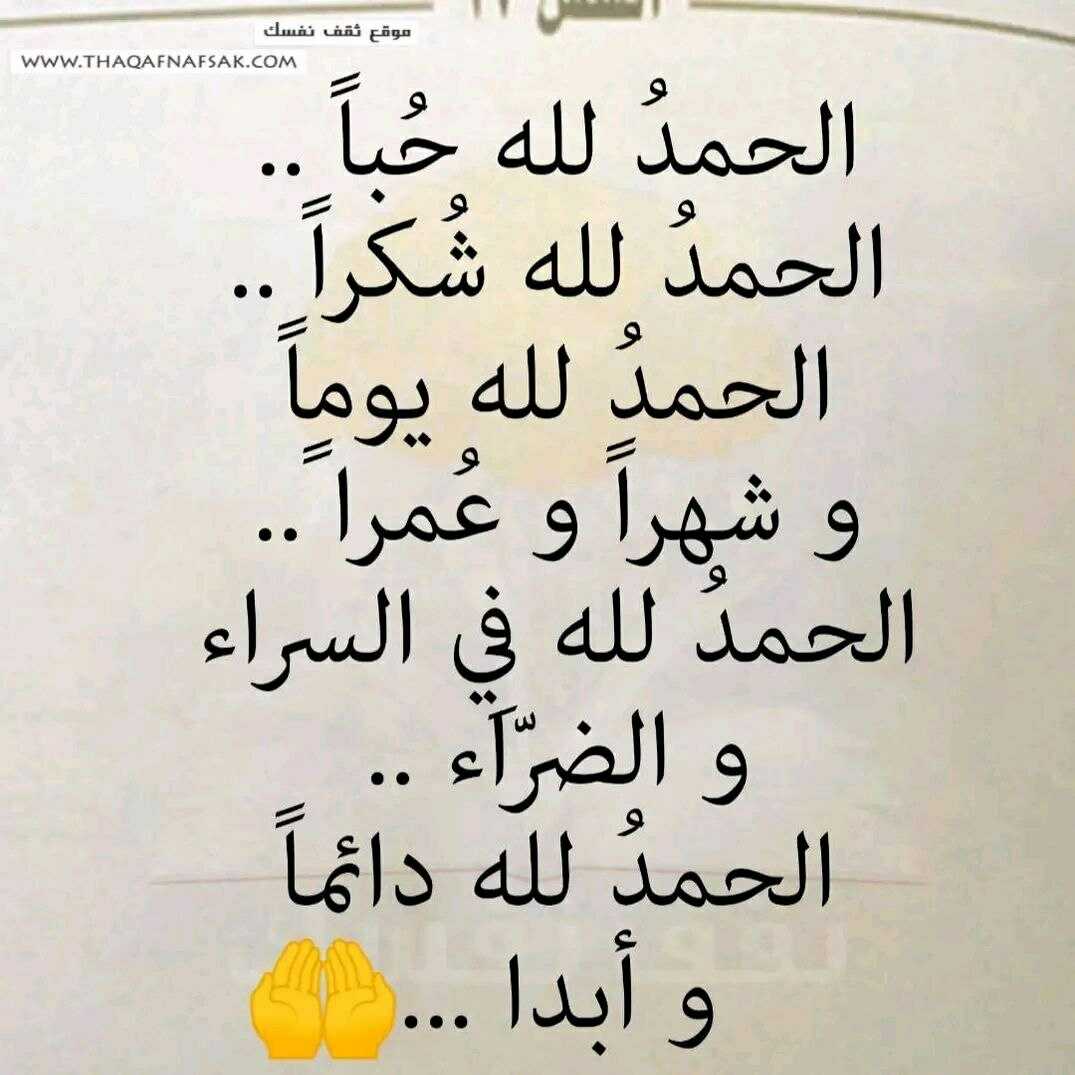 موقع ثقف نفسك
WWW.THAQAFNAFSAK.COM
الحمدُ لله حُباً ..
الحمدُ لله شُكراً ..
الحمدُ لله يوماً
و شهراً و عُمراً ..
الحمدُ لله في السراء
و الضرّاَء ..
الحمدُ لله دائماً
و أبدا ...